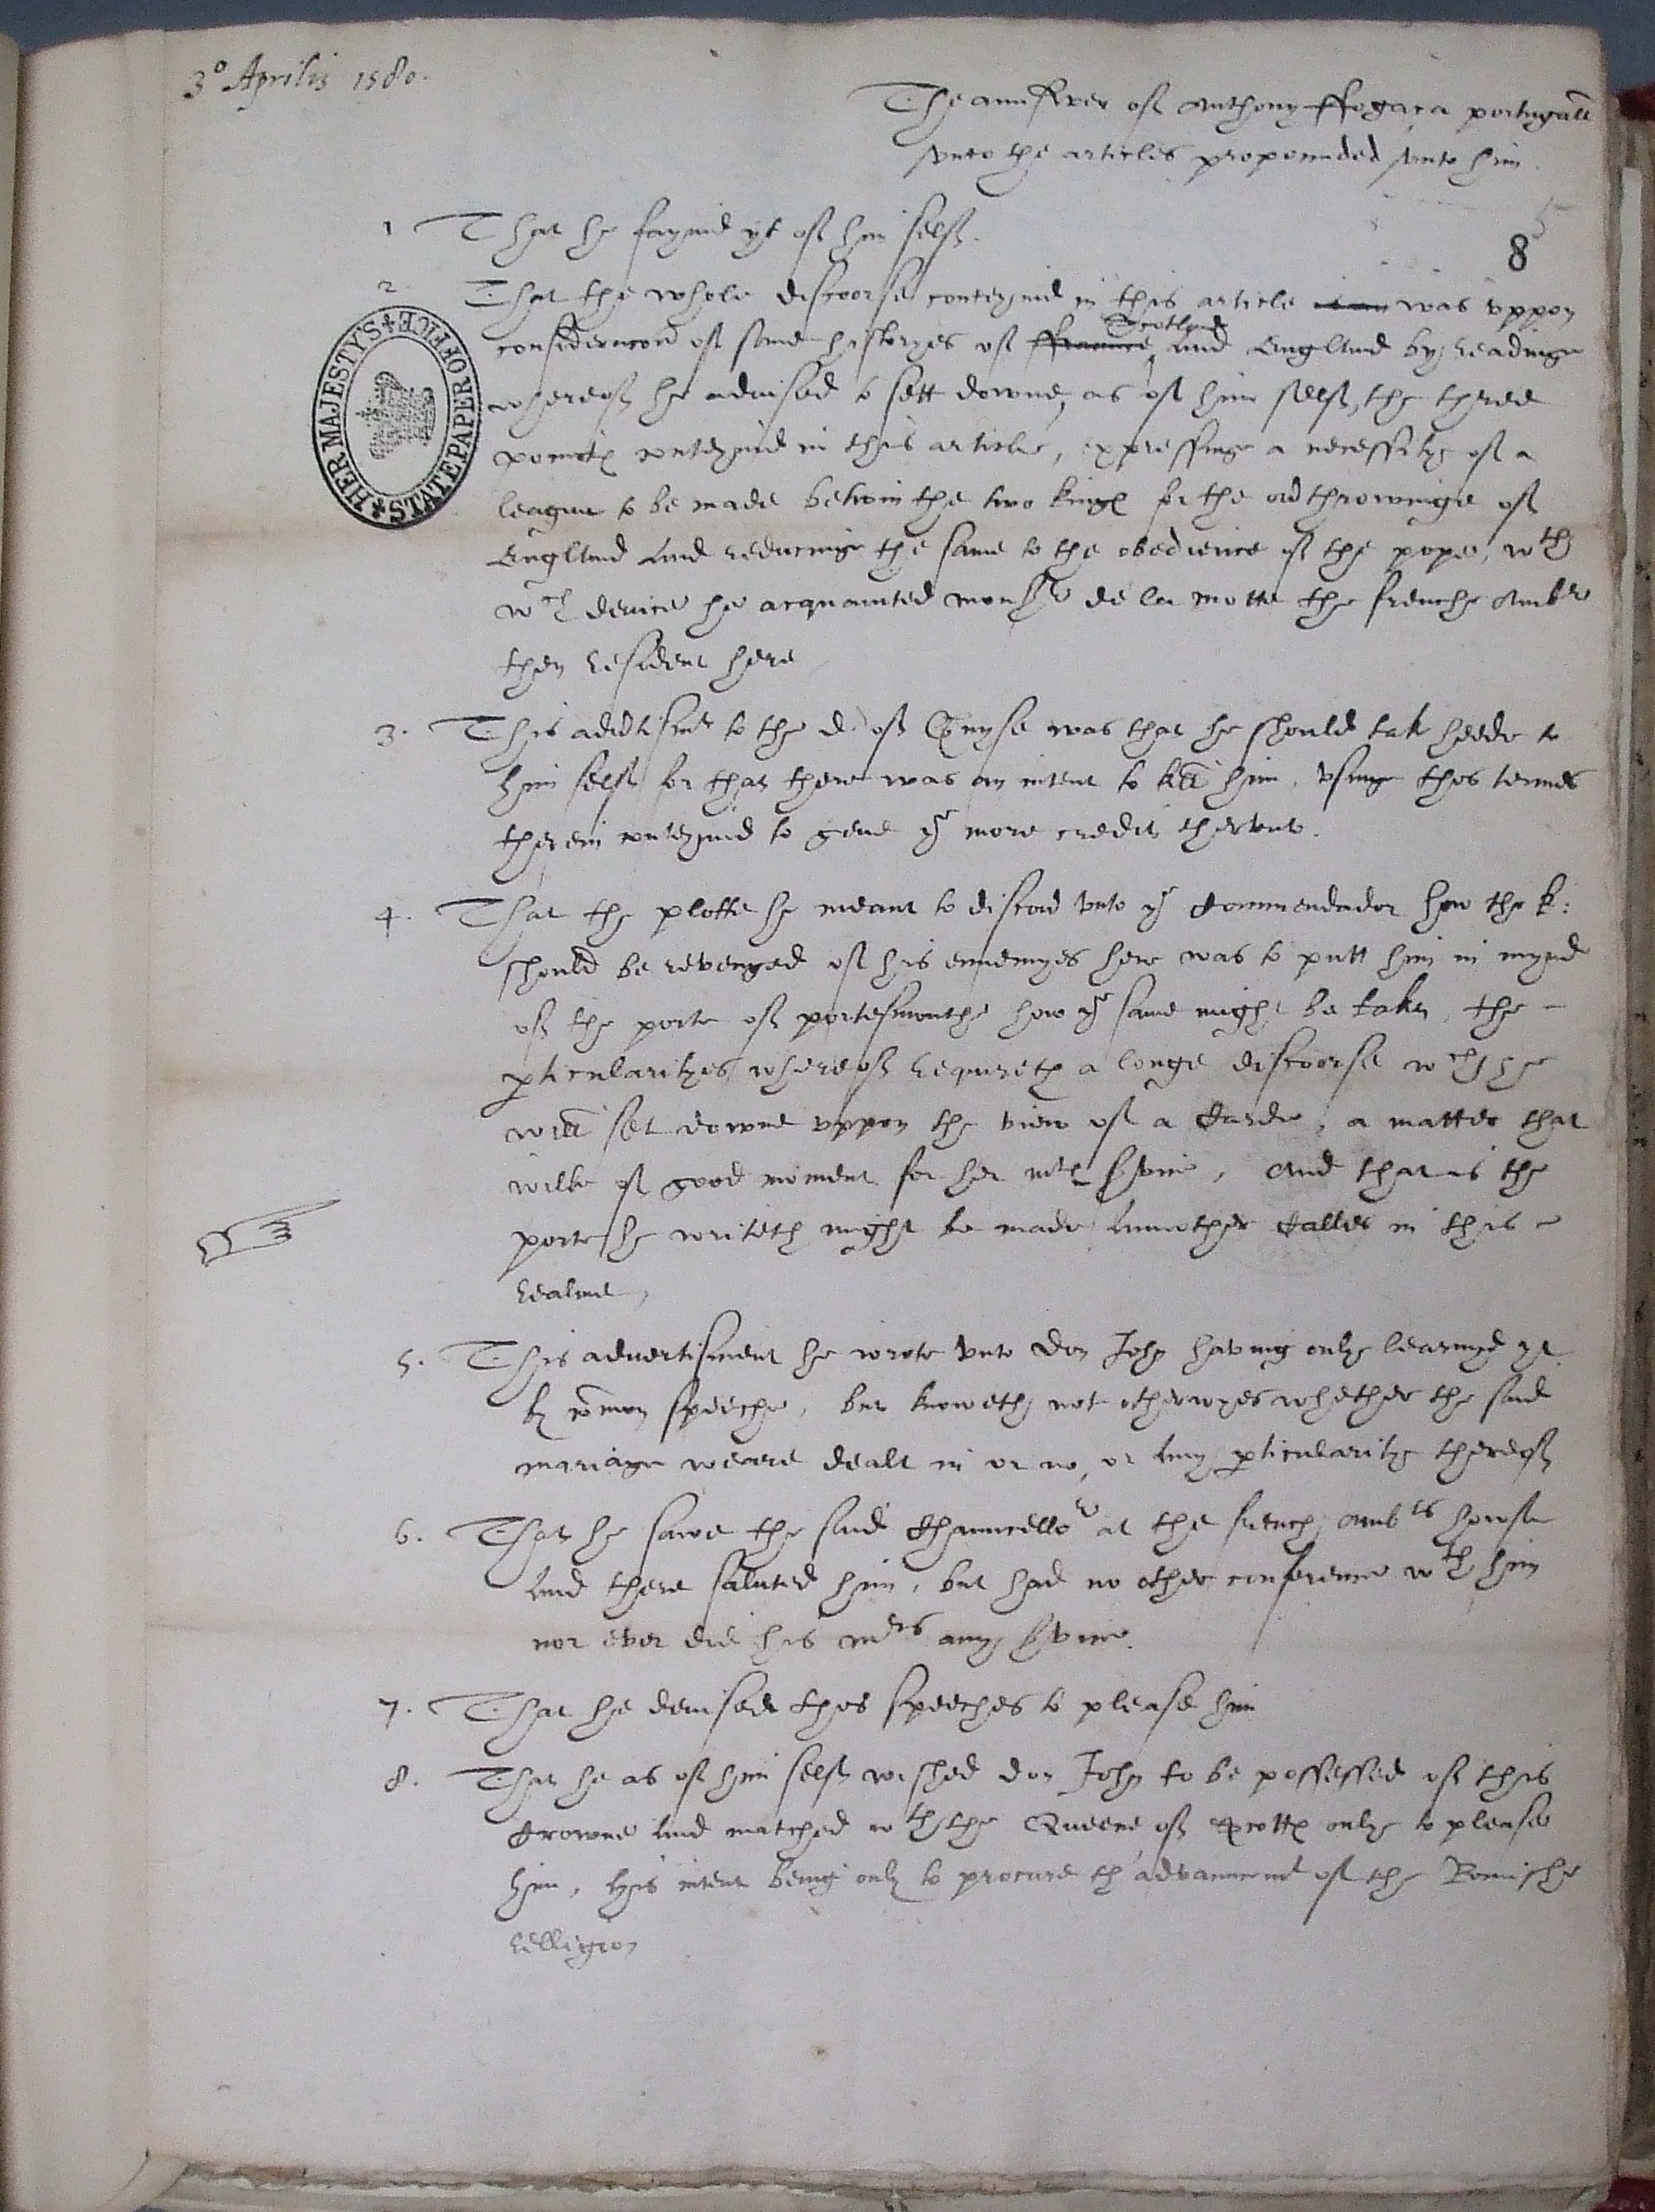 3º Aprilis 1580.
The aunswer of Anthony ffogaca portugall
vnto the articles propounded vnto him.
8
1 That he faynid yt of him self.
2 That the whole discoorse conteynid in this article was vppon
consideracon of some historyes of ffraunce Scotland and England by readinge
whereof he advised to sett downe, as of him self, the three
pointes conteynid in this article, expressinge a necessitye of a
league to be made betwin the two kinges for the outhrowinge of
England and reducinge the same to the obedience of the pope, wth
wch deuice he acquainted monsr de la motte the frenche Ambr
then resident here
3. This advertismt to the d. of Guyse was that he should tak heede to
him self for that there was an intent to kill him, vsinge thes termes
therein conteynid to geue ye more credit thervnto.
4. That the plotte he meant to discour vnto ye Commendador how the k:
should be revenged of his ennemyes here was to putt him in mynd
of the porte of portesmouthe how ye same might be taken, the
pticularityes whereof requireth a longe discoorse wch he
will set downe vppon the view of a Carde, a matter that
wilbe of good moment for her mtes service, And that is the
porte he writeth might be made annother Calles in this
realme,
5. This aduertisment he wrote vnto Don John having only learnyd yt
by comon speeche, but knoweth not otherwyes whether the said
mariage weare dealt in or no, or any pticularitye thereof
6. That he sawe the said Chauncellor at the french Ambrs howse
And there saluted him, but had no other conference wth him
nor ever did his mrs any service.
7. That he deuised thes speeches to please him
8. That he as of him self wished don John to be possessed of this
Crowne And matched wth the Queene of Scottes only to please
him, his intent being only to procure th advauncemt of the Romishe
relligion
HER MAJESTY'S STATE PAPER OFFICE